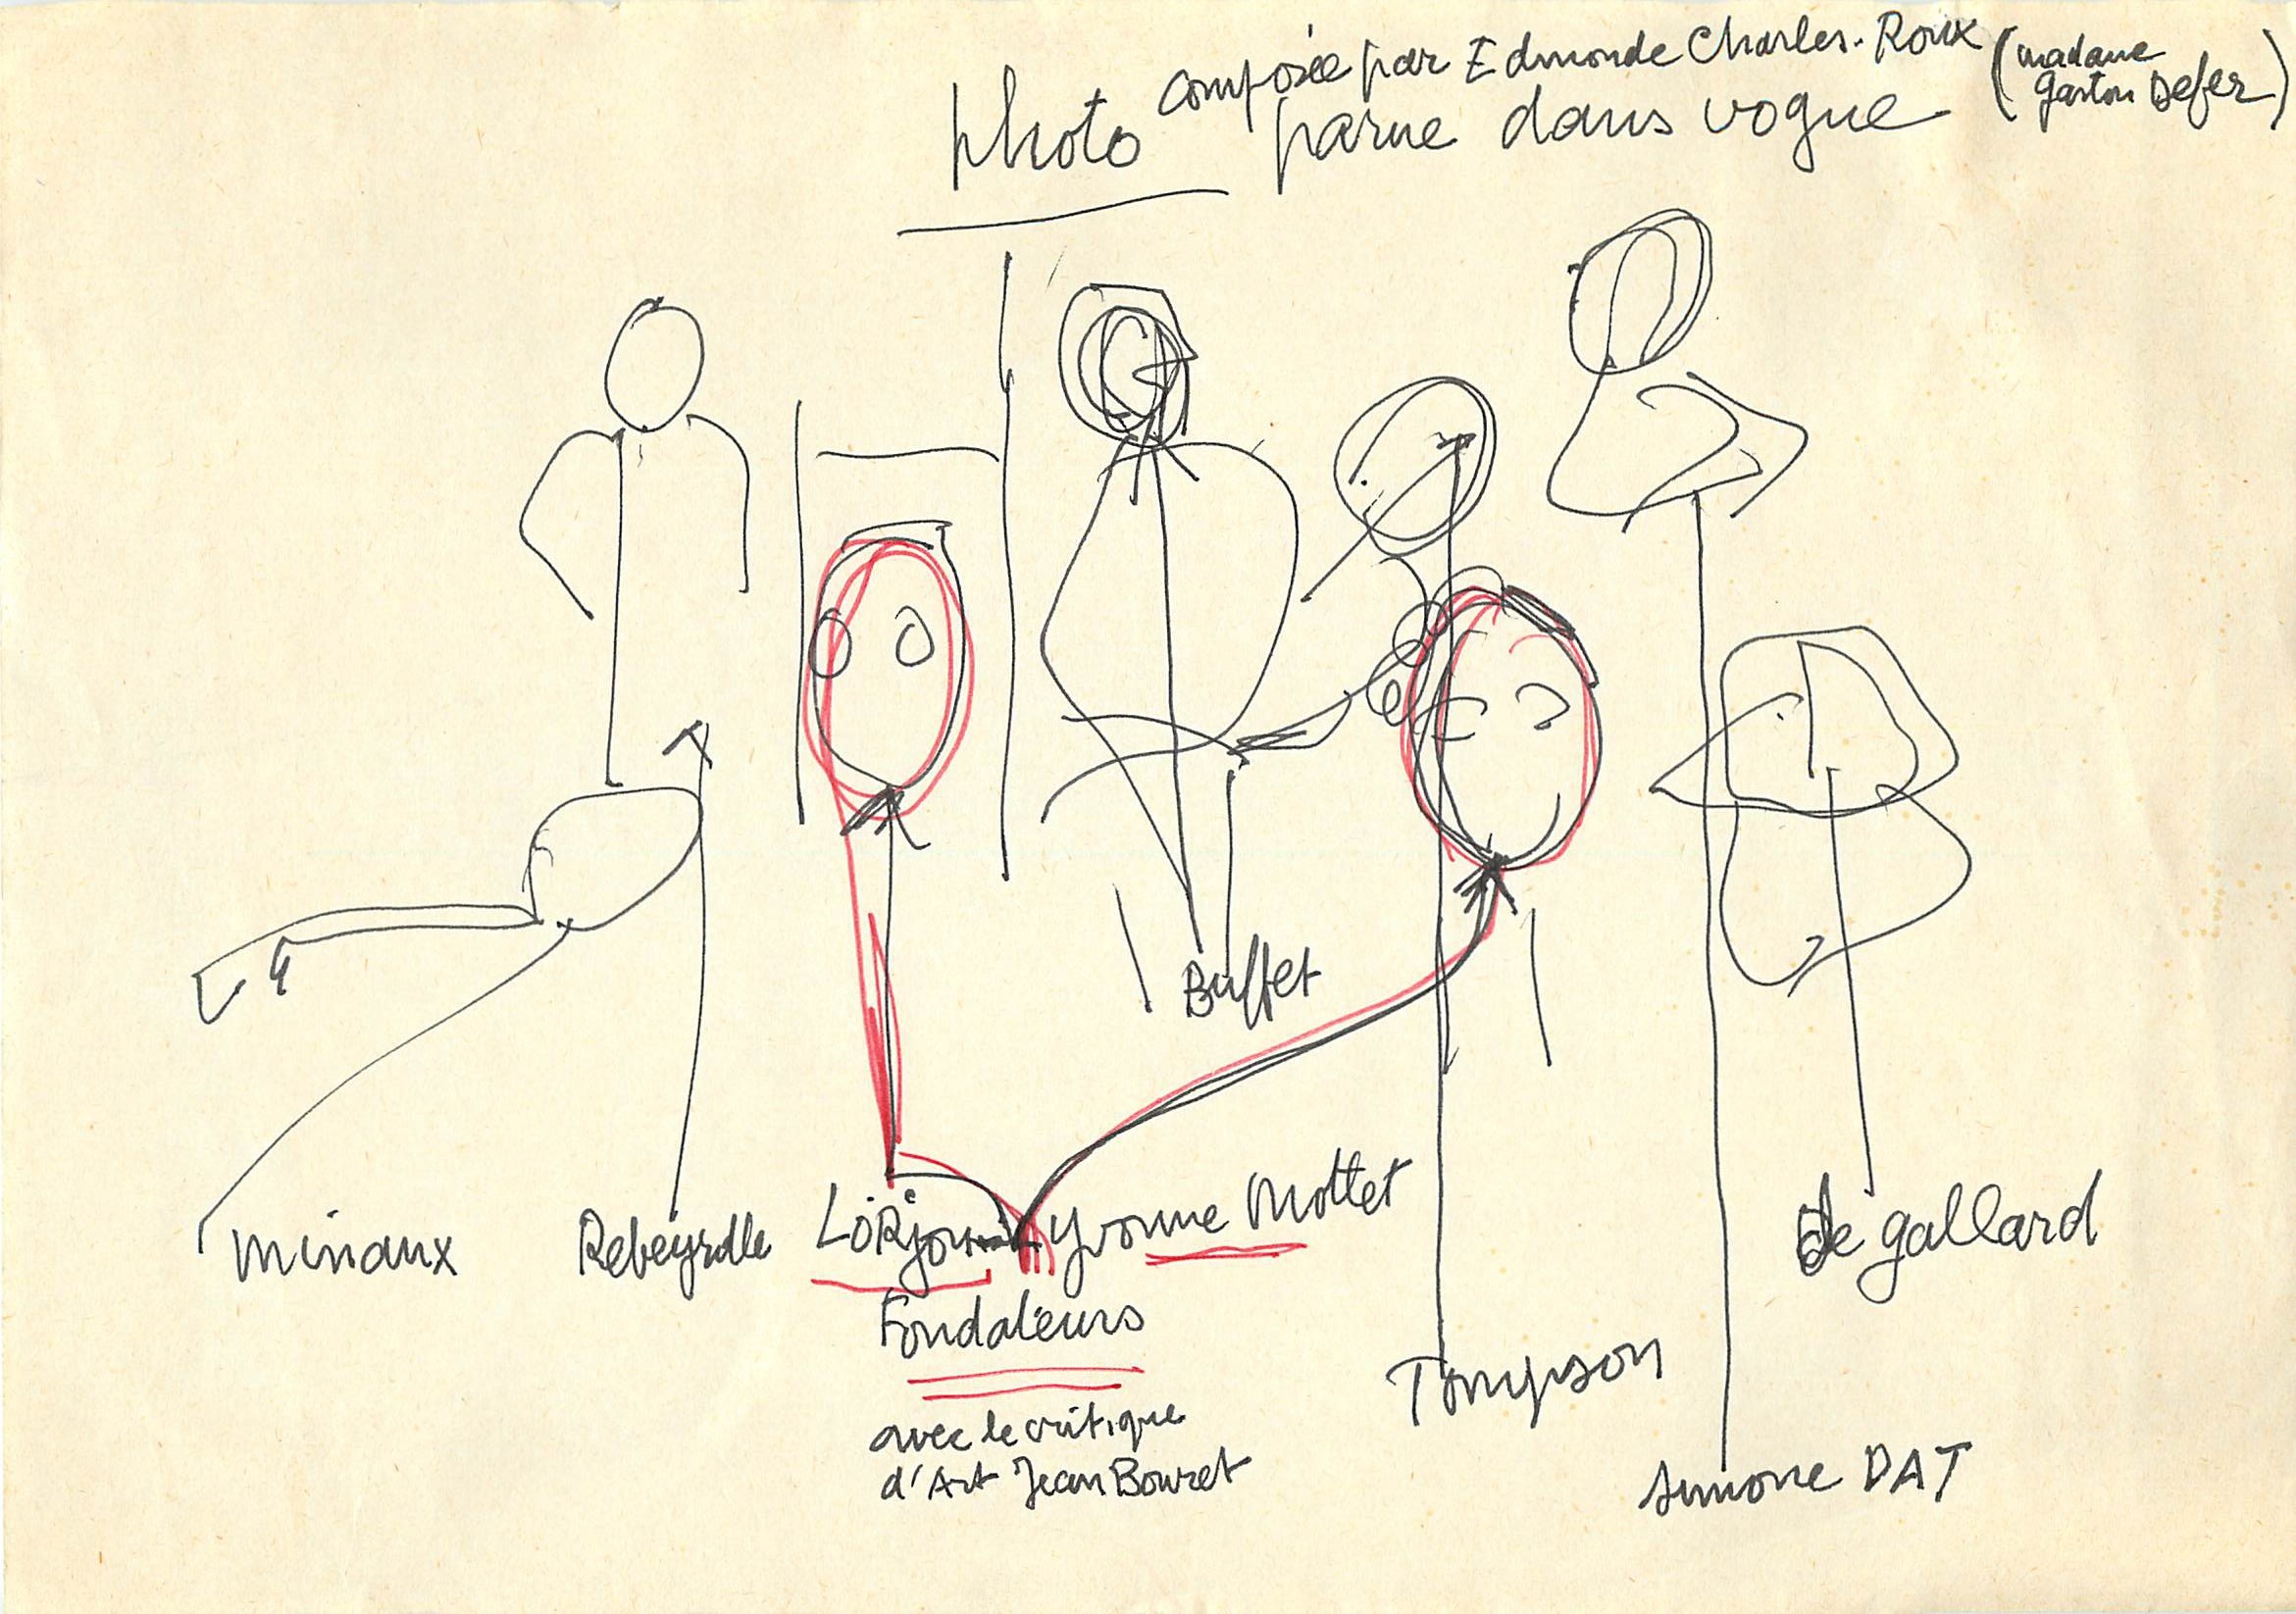 composée par Edmonde Charles-Roux (madame
gaston Defer)
photo parue dans vogue
Buffet
minaux Rebeyrolle LORjou Yvonne Mottet de gallard
Fondateurs
Tompson
avec le critique
d'Art Jean Bouret
simone DAT